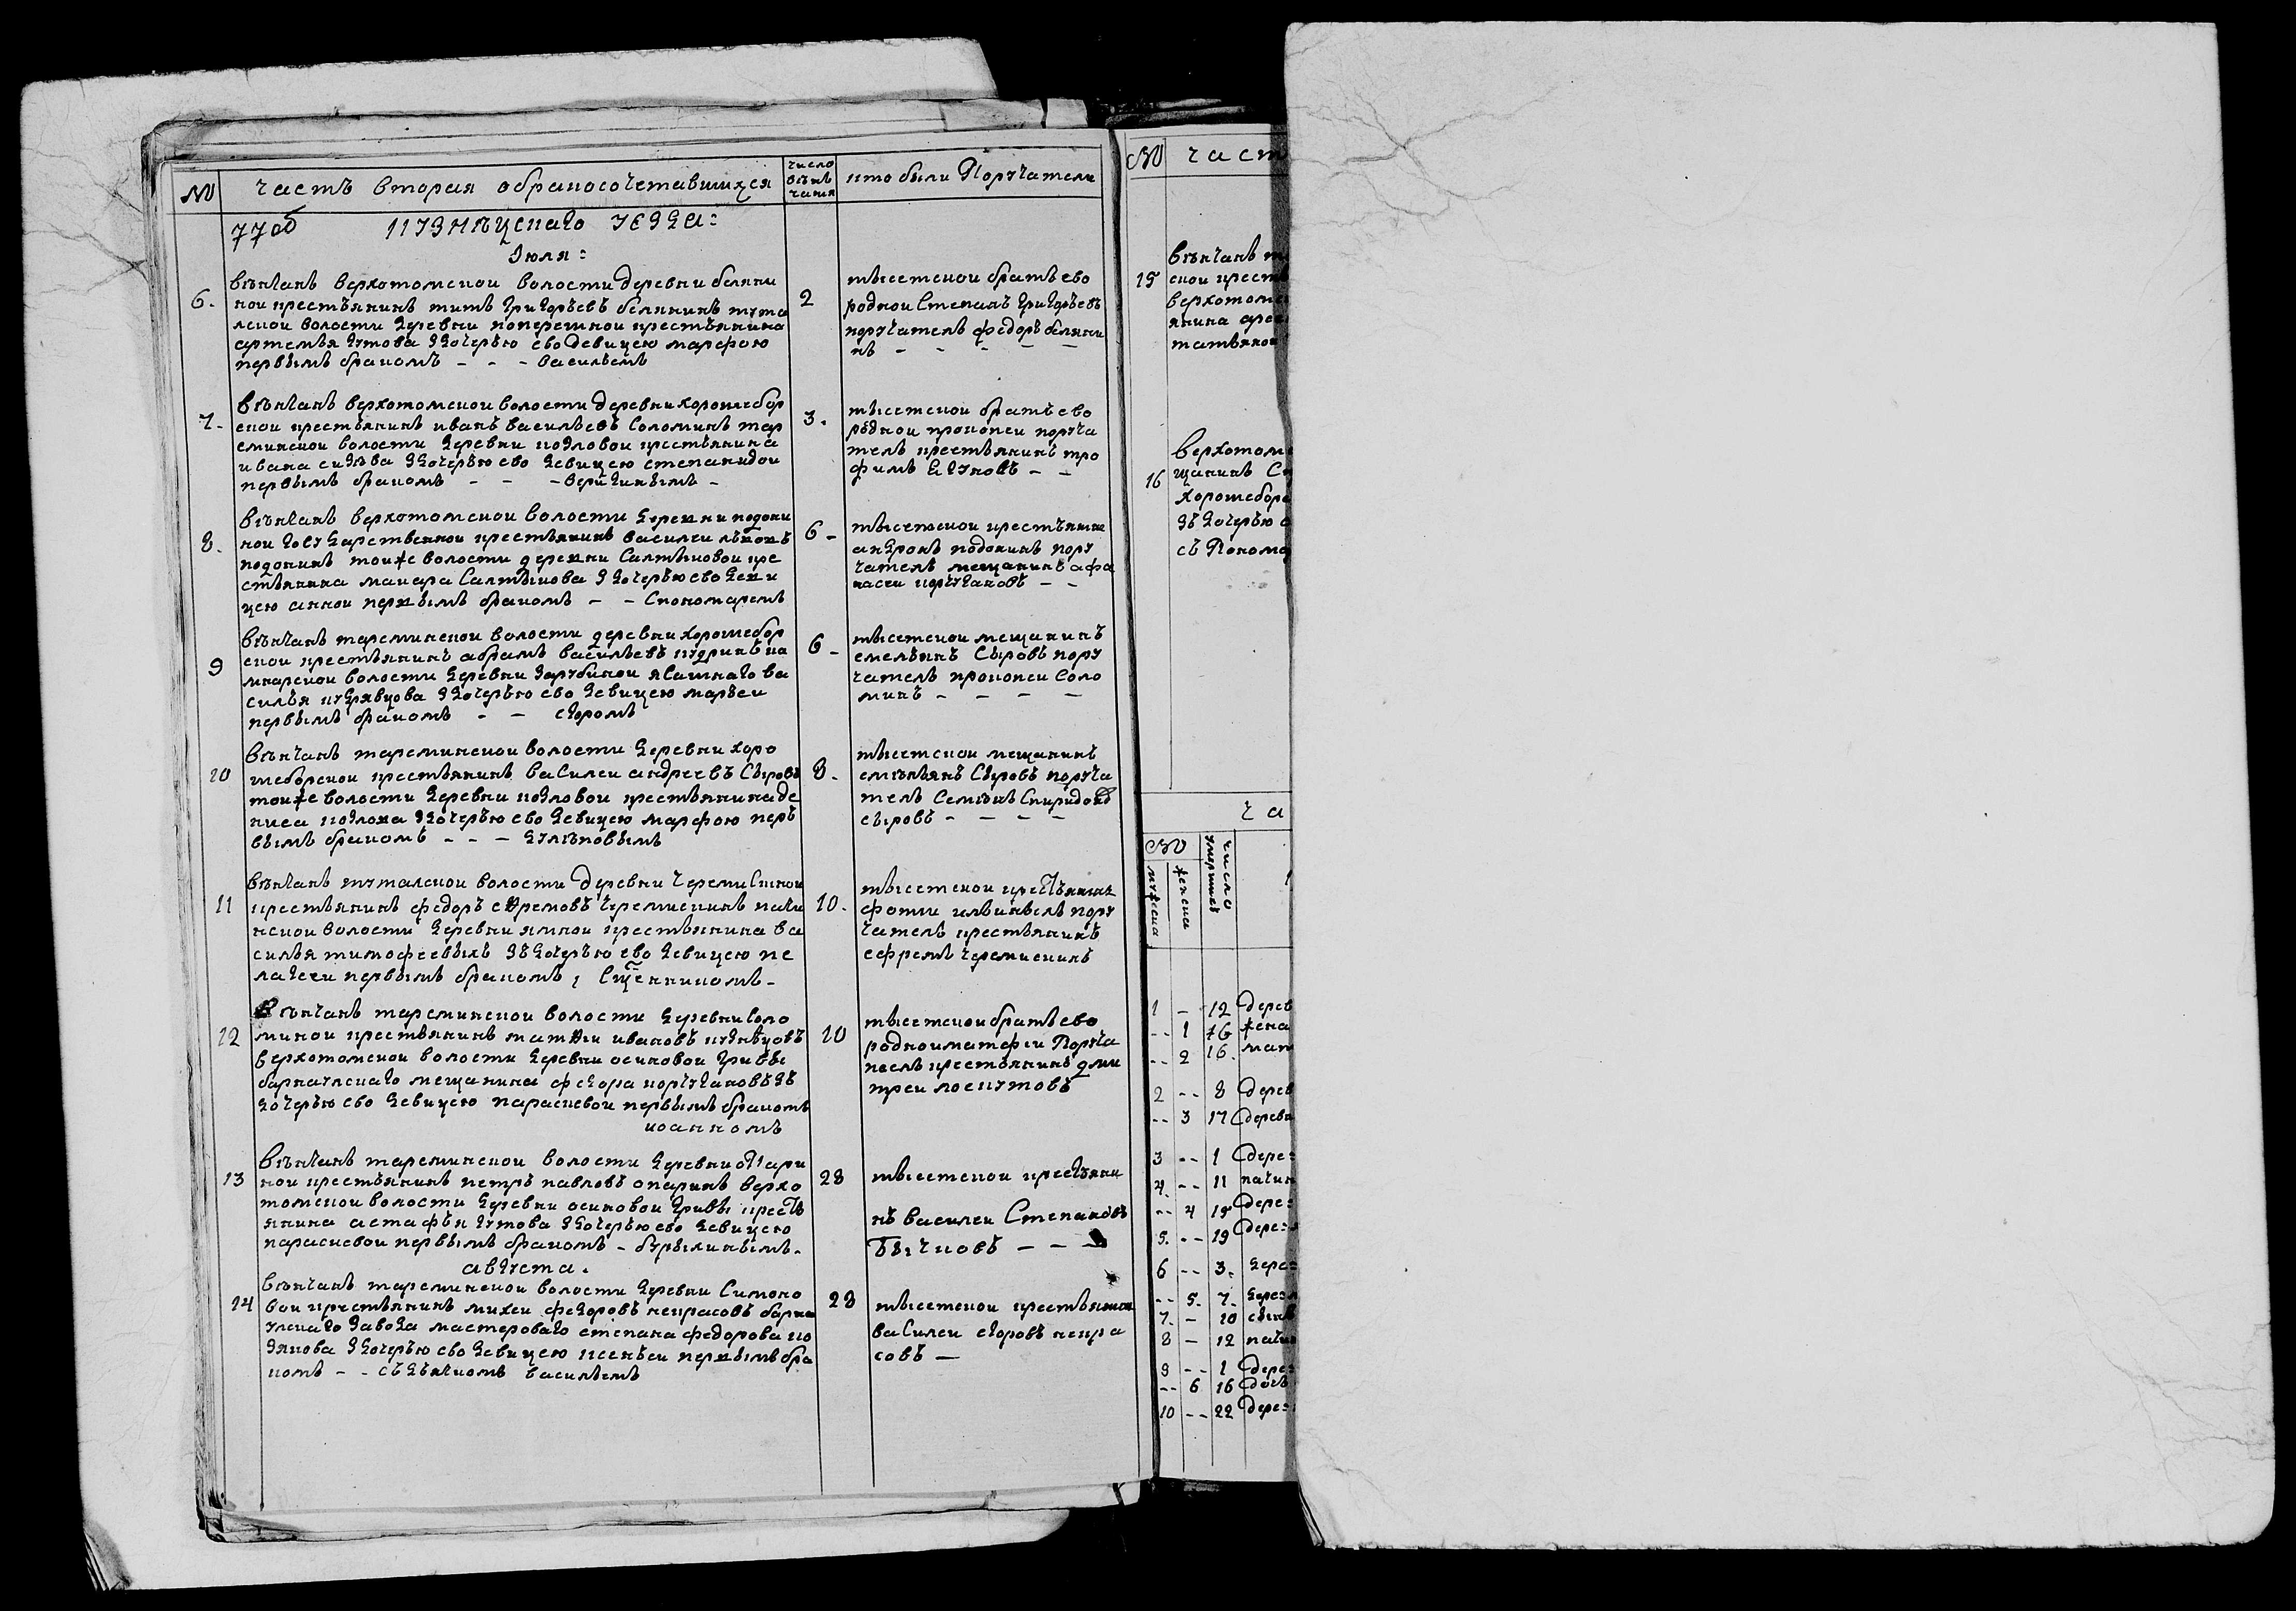 № часть вторая обракосочетавшихся число венъ чания кто были Поручатели
77об кузнецкаго уезда:
Июля:
6. венчанъ верхотомской волости деревни белкини
ной крестьянинъ титъ григорьевъ белкинъ тута
лской волости деревни поперешной крестьянина
артемья гутова здочерью ево девицею марфою
первымъ бракомъ - - - васильемъ
2
тысетской братъ ево
родной Степанъ григорьевъ
поручатель федоръ белкини
нъ - - - - -
7. венчанъ верхотомской волости деревни хорошебор
ской крестьянинъ иванъ васильевъ Соломинъ тар
сминской волости деревни козловой крестьянина
ивана сизева здочерью ево девицею степанидой
первымъ бракомъ - - - веригинымъ -
3.
тысетской братъ ево
родной прокопей поруча
тель крестьянинъ тро
фимъ - -
8. венчанъ верхотомской волости деревни подони
ной государственной крестьянинъ василей
подонинъ тойже волости деревни Салтыковой кре
стьянина макара Салтыкова здочерью ево деви
цею анной первымъ бракомъ - - Спономаремъ
6 -
тысетской крестьянин
андронъ подонинъ пору
чатель мещанинъ афа
насей корчугановъ - -
9 венчанъ тарсминской волости деревни хорошебор
ской крестьянинъ абрамъ васильевъ кудринъ ка
минарской волости деревни зарубиной ясашнаго ва
силья кудрявцова здочерью ево девицею марьей
первымъ бракомъ - - егоромъ
6 -
тысетской мещанинъ
емельянъ Сыровъ пору
чатель прокопей Соло
минъ - - - -
10 венчанъ тарсминской волости деревни хоро
шеборской крестьянинъ василей андреевъ Сыровъ
тойже волости деревни козловой крестьянина де
ниса козлова здочерью ево девицею марфою пер
вымъ бракомъ - - -
8.
тысетской мещанинъ
емельянъ Сыровъ поруча
тель Семенъ Спиридоно
сыровъ - - - -
11 венчанъ туталской волости деревни черемисиной
крестьянинъ федоръ ефремовъ черемисинъ пачи
нской волости деревни ямной крестьянина ва
силья тимофеевыхъ здочерью ево девицею пе
лагеей первымъ бракомъ, Сщенникомъ -
10.
тысетской крестьянинъ
фотий пору
чатель крестьянинъ
ефремъ черемисинъ
12 Венчанъ тарсминской волости деревни Соло
миной крестьянинъ матфей ивановъ кузнецовъ
верхотомской волости деревни осиновой гривы
барнаулскаго мещанина федора корчугановъ зъ
дочерью ево девицею парасковой первымъ бракомъ
иоанномъ
10
тысетской братъ ево
родной матфей Поруча
тель крестьянинъ дми
трей лоскутовъ
13 венчанъ тарсминской волости деревни опари
ной крестьянинъ петръ павловъ опаринъ верхо
томской волости деревни осиновой гривы крестъ
янина астафья гутова здочерью ево девицею
парасковой первымъ бракомъ - бурыкинымъ.
28
тысетской крестьяни
нъ василей Степановъ
Бычковъ - - -
августа.
14 венчанъ тарсминской волости деревни Симоно
вой крестьянинъ михей федоровъ некрасовъ барна
улскаго завода мастероваго степана федорова ко
зякова здочерью ево девицею ксеньей первымъ бра
комъ - - съ дьячкомъ васильемъ
28
тысетской крестьянин
василей егоровъ некра
совъ -
№ част
15 венчанъ т
ской крест
верхотом
янина
татьяной
16 верхотом
щанинъ С
хорошебор
зъ дочерью
съ Понома
ча
№ число умерших
мужеска женска
1 - 12 дерев
-- 1 16 жена
-- 2 16. мат
2 -- 8 дерев
-- 3 17 деревн
3 -- 1 дере=
4. -- 11 пачин
-- 4 15 дере=
5. -- 19 дере=
6 -- 3. дере=
-- 5. 7. дере=
7. - 10 сын
8 - 12 пачи
9 -- 1 дере=
-- 6 16 дочь
10 -- 22 дере=